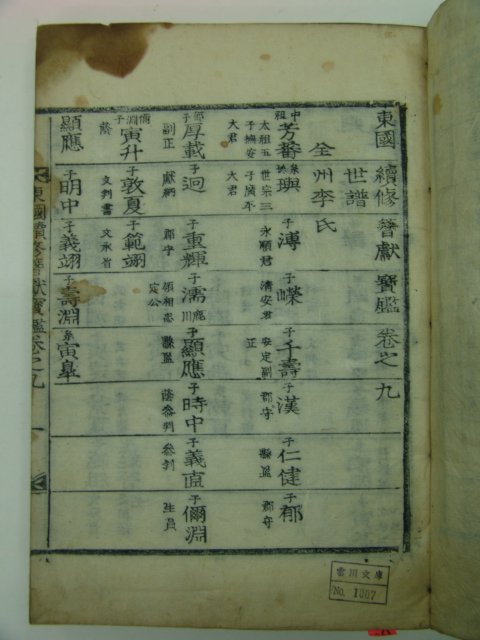 東國續修簪獻寶鑑卷之九
世譜
全州李氏
中祖 芳蕃 太祖五子撫安大君
系 璵 世宗三子廣平大君
子 溥 永順君
子 嶸 淸安君
子 千壽 安定副正
子 漢 郡守
子 仁健 縣監
子 郁 郡守
子 厚載 副正
子 迥 獻納
子 重輝 郡守
子 濡 鹿川 領相忠定公
子 顯應 縣監
子 時中 蔭參判
子 義直 參判
子 儞淵 生員
儞淵子 寅升 蔭
子 敦夏 文判書
子 範翊 文承旨
顯應
子 明中
子 義翊
子 壽淵
系 寅皐
東國續修簪獻寶鑑卷之九 一
雲川文庫
No. 1007